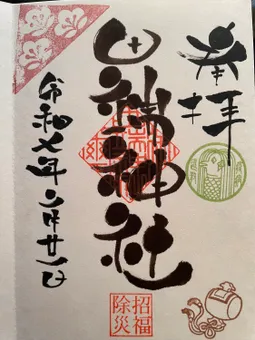 奉拝
田端神社
令和七年
月廿一日
招福
除災